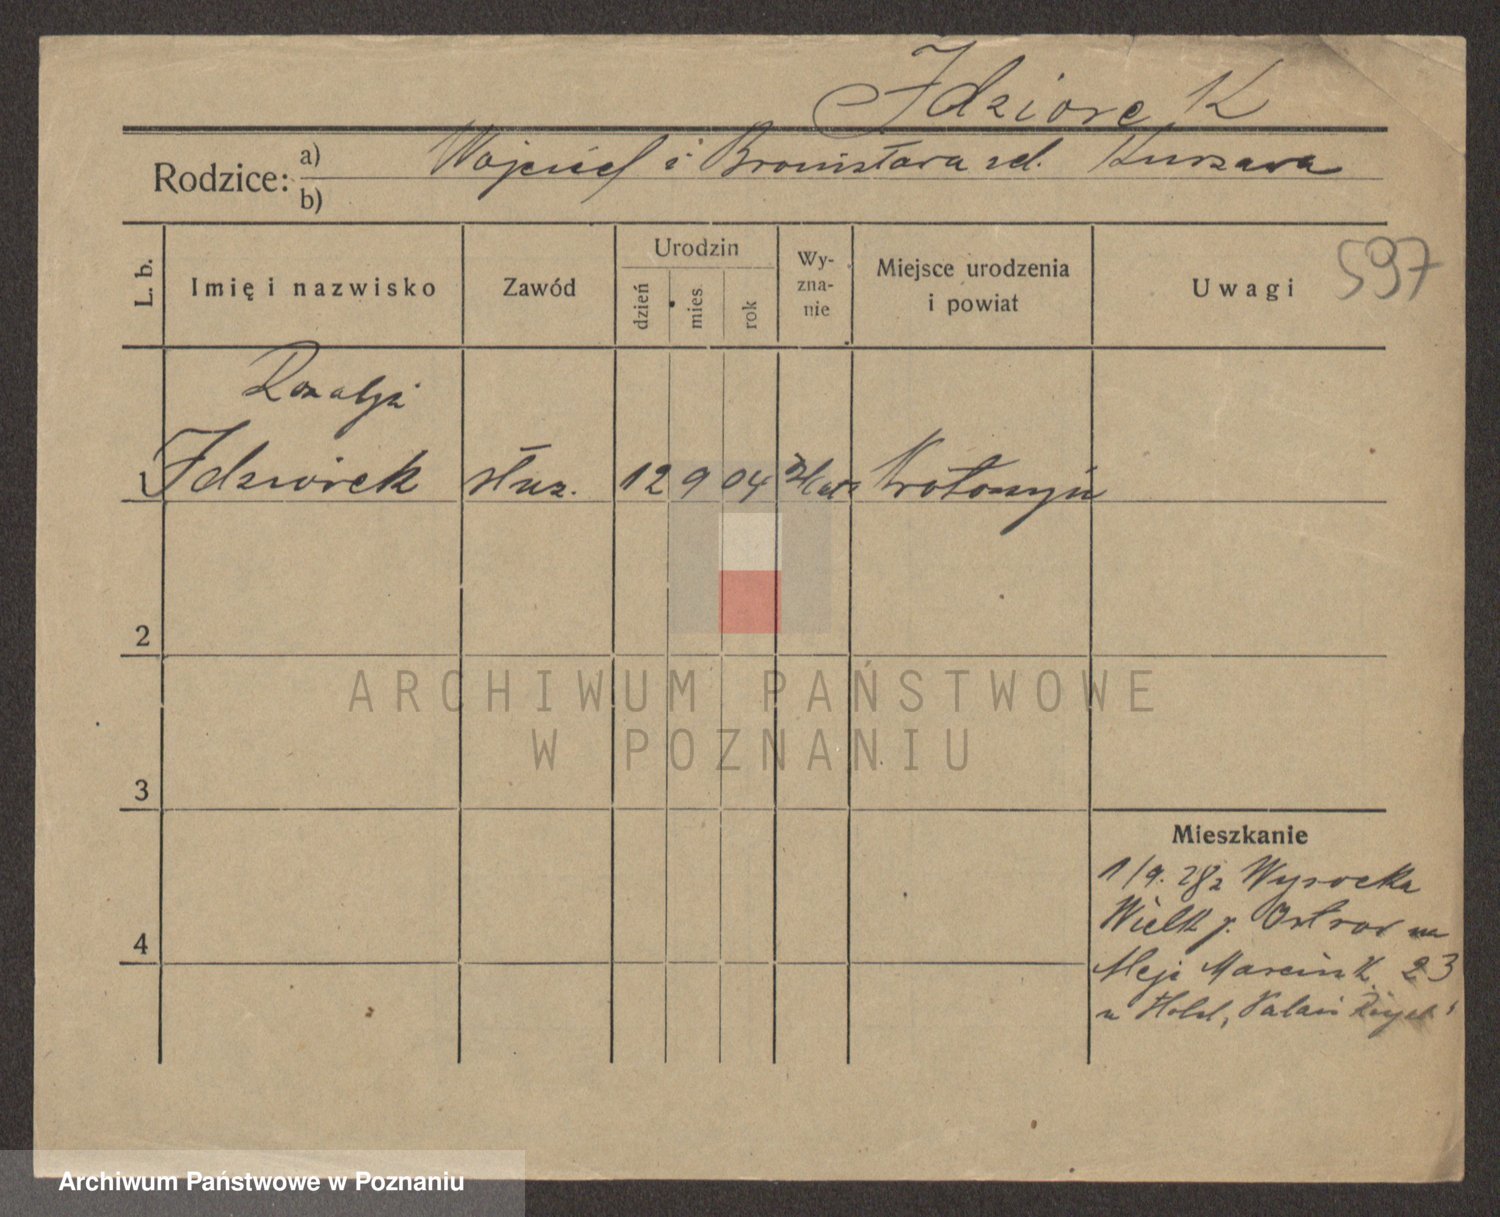 Idziorek
Rodzice: a) Wojciech i Bronisława zd. Kurzawa
b)
L. b.
Imię i nazwisko
Zawód
Urodzin
dzień
mies
rok
Wy-
zna-
nie
Miejsce urodzenia
i powiat
Uwagi
597
Rozalja
1 Idziorek służ. 12 9 04 Krotoszyn
2
3
4
Mieszkanie
1/9. 28 z Wysocka
Wielk p. Ostrow na
Aleje Marcink. 23
u Hotel, Palais Royal
ARCHIWUM PAŃSTWOWE
W POZNANIU
Archiwum Państwowe w Poznaniu